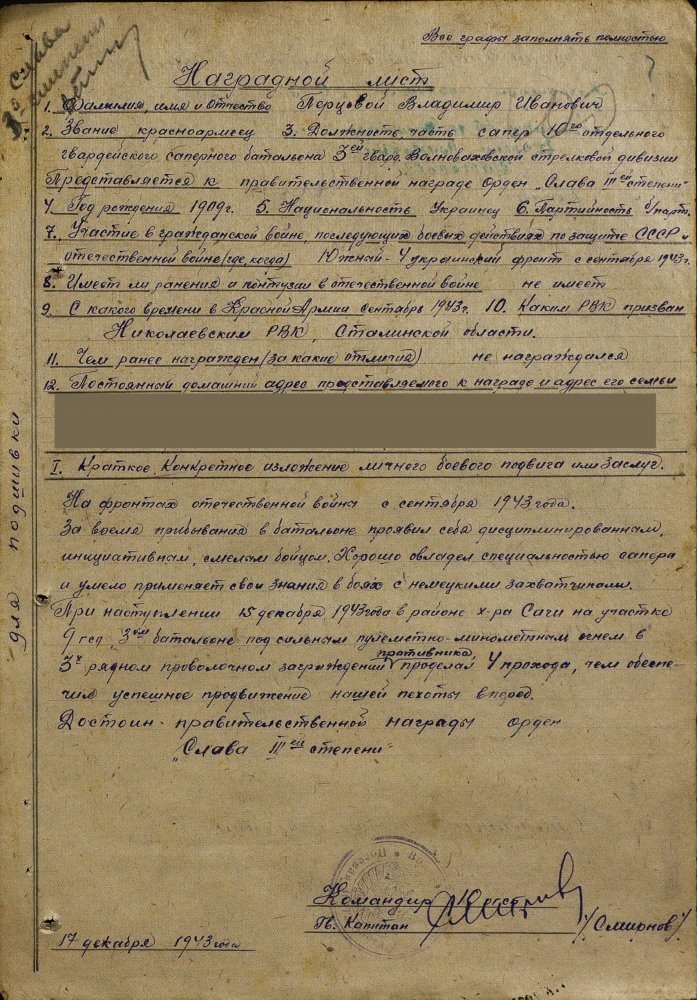 Все графы заполнять полностью
Слава
3й степени
Наградной лист
1. Фамилия, имя и Отчество Перцовой Владимир Иванович
2. Звание красноармеец 3. Должность, часть сапер 10го отдельного
гвардейского саперного батальона 3ей гвард. Волновахской стрелковой дивизии
Представляется к правительственной награде орден „Слава III ей степени"
4. Год рождения 1909г. 5. Национальность Украинец 6. Партийность б/парт.
7. Участие в гражданской войне, последующих боевых действиях по защите СССР и
отечественной войне (где, когда) Южный-4 украинский фронт с сентября 1943г.
8. Имеет ли ранения и контузии в отечественной войне не имеет
9. С какого времени в Красной Армии сентябрь 1943г. 10. Каким РВК призван
Николаевским РВК, Сталинской области.
11. Чем ранее награжден (за какие отличия) не награждался
12. Постоянный домашний адрес представляемого к награде и адрес его семьи
I. Краткое, Конкретное изложение личного боевого подвига или заслуг.
На фронтах отечественной война с сентября 1943 года.
За время прибывания в батальоне проявил себя дисциплинированным,
инициативным, смелым бойцом. Хорошо овладел специальностью сапера
и умело применяет свои знания в боях с немецкими захватчиками.
При наступлении 15 декабря 1943 года в районе х-ра Саги на участке
9 гсд 3ем батальоне под сильным пулеметно-минометным огнем в
3х рядном проволочном заграждении противника проделал 4 прохода, чем обеспе-
чил успешное продвижение нашей пехоты вперед.
Достоин - правительственной награды орден
„Слава III ей степени"
Командир
Гв. Капитан /Смирнов/
17 декабря 1943 года
для подшивки